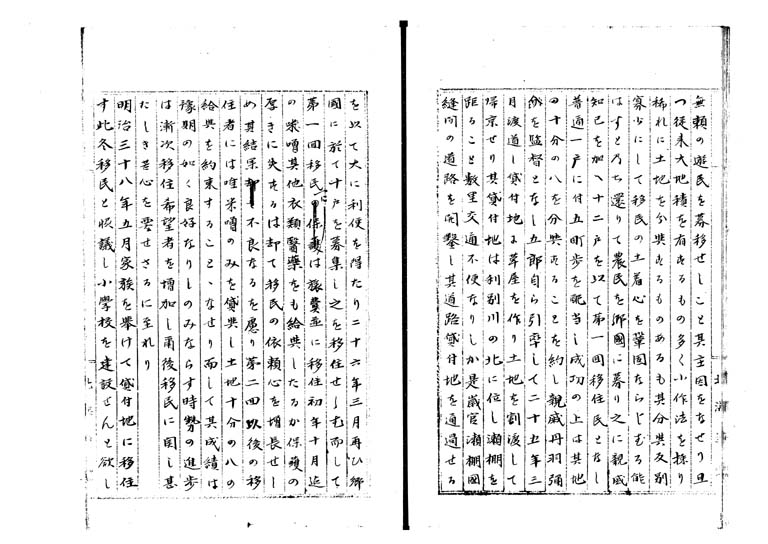 無頼の遊民を募移せしこと其主因をなせり且
つ従来大地積を有するもの多く小作法を採り
稀れに土地を分与するものあるも其分与反別
寡少にして移民の土着心を鞏固ならしむる能
はすと乃ち還りて農民を郷国に募り之に親戚
知己を加へ十二戸を以て第一回移住民となし
普通一戸に付五町歩を配当し成功の上は其地
四十分の八を分与することを約し親戚丹羽彌
を監督となし五郎自ら引率して二十五年三
月渡道し貸付地に草屋を作り土地を割渡して
帰京せり其貸付地は利別川の北に位し瀬棚を
距ること数里交通不便なりしか是歳官瀬棚国
縫間の道路を開鑿し其道路貸付地を通過せる
を以て大に利便を得たり二十六年三月再ひ郷
国に於て十戸を募集し之を移住せしむ而して
第一回移民には旅費並に移住初年十月迄
の味噌其他衣類醫薬をも給與したるか保護の
厚きに失するは却て移民の依頼心を増長せし
め其結果不良なるを慮り第二回以後の移
住者には唯米噌のみを貸與し土地十分の八の
給與を約束することゝなせり而して其成績は
豫期の如く良好なりしのみならす時勢の進歩
は漸次移住希望者を増加し爾後移民に関し甚
たしき苦心を要せさるに至れり
明治三十八年五月家族を挙けて貸付地に移住
す此冬移民と協議し小学校を建設せんと欲し